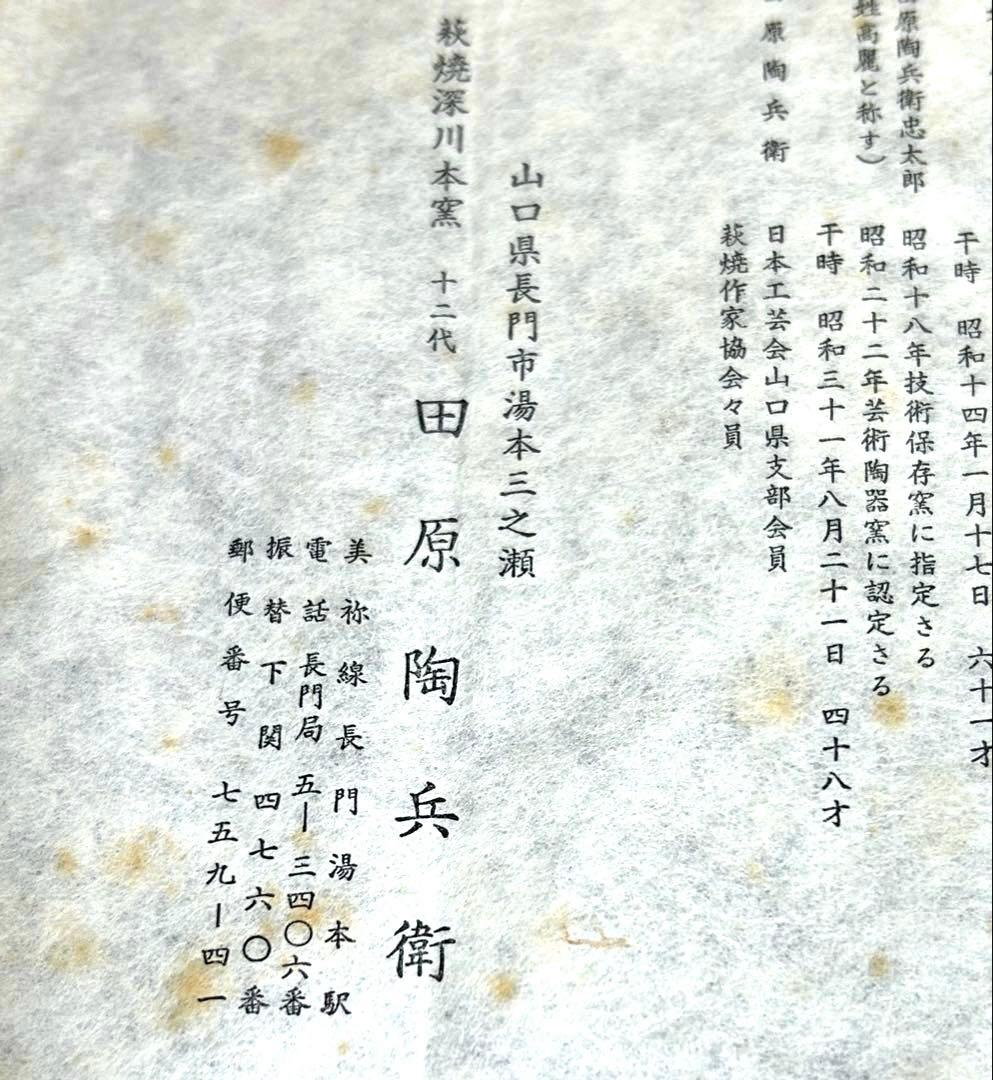 干時　昭和十四年一月十七日　六十一才
原陶兵衛忠太郎　昭和十八年技術保存窯に指定さる
姓高麗と称す）　昭和二十二年芸術陶器窯に認定さる
干時　昭和三十一年八月二十一日　四十八才
原陶兵衛　日本工芸会山口県支部会員
萩焼作家協会々員
山口県長門市湯本三之瀬
萩焼深川本窯　十二代　田原陶兵衛
美祢線長門湯本駅
電話長門局　五―三四〇六番
振替下関　四七六〇番
郵便番号　七五九―四一